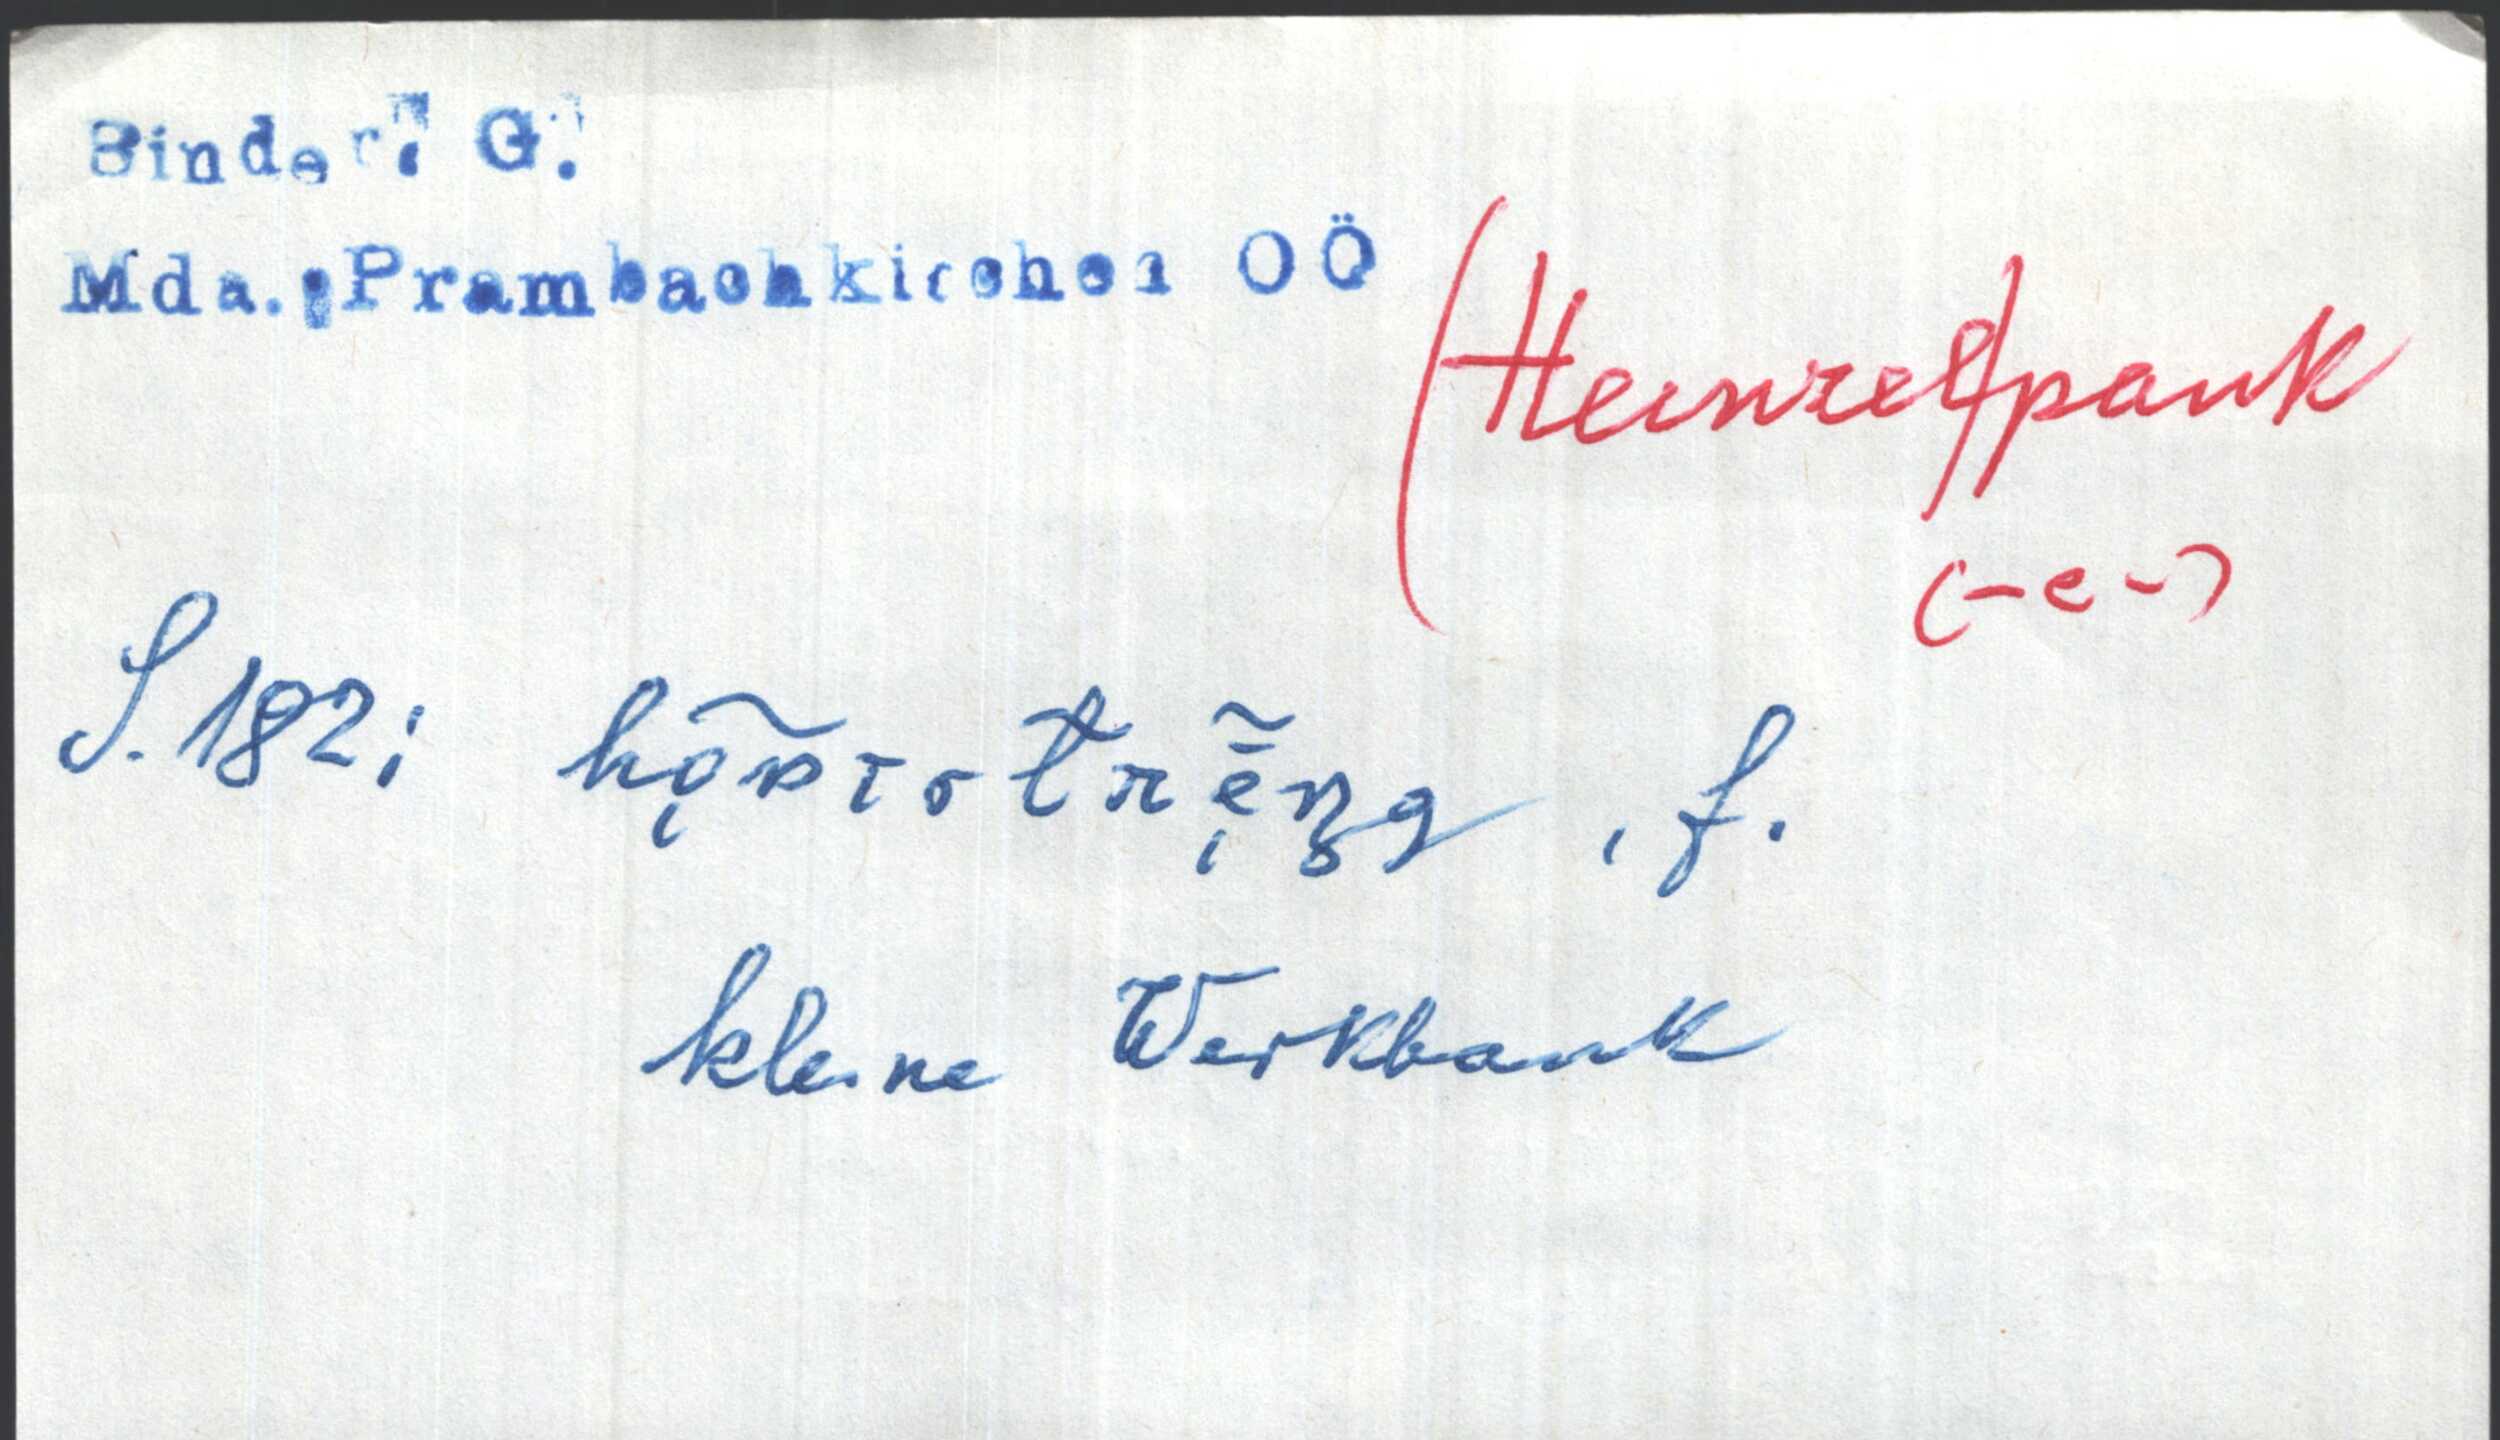 Binder, G.
Mda.: Prambachkirchen OÖ
(Heinzel/pank
(-e-)
S. 182; , f.
kleine Werkbank